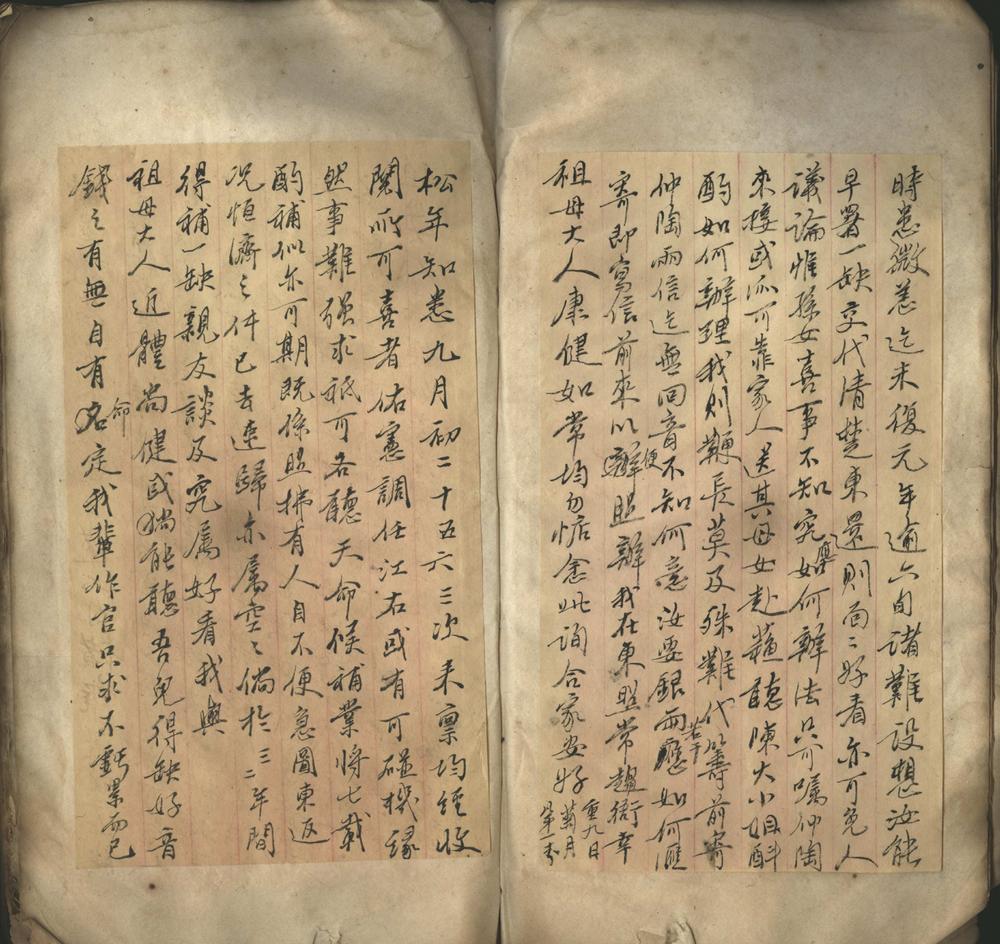 時患微恙迄未復元年逾六旬諸難設想汝能
早署一缺交代清楚東還則面〻好看亦可免人
議論惟孫女喜事不知究竟如何辦法只可囑仲陶
來接或派可靠家人送其母女赴蘇聽陳大小姐斟
酌如何辦理我則鞭長莫及殊難代籌前寄
仲陶兩信迄無回音不知何意汝要銀若干應如何匯
寄即寫信前來以便照辦我在東照常趨衙幸
祖母大人康健如常均勿惦念此詢合家安好
重九日
菊月
松年知悉九月初二十五六三次來稟均經收
閱所可喜者佑憲調任江右或有可碰機緣
然事難强求祇可各聽天命候補業將七載
酌補似亦可期既係照拂有人自不便急圖東返
况恒濟之件已去連歸亦屬空〻倘於二三年間
得補一缺親友談及究屬好看我與
祖母大人近體尚健或猶能聽吾兒得缺好音
錢之有無自有命定我輩作官只求不虧累而已